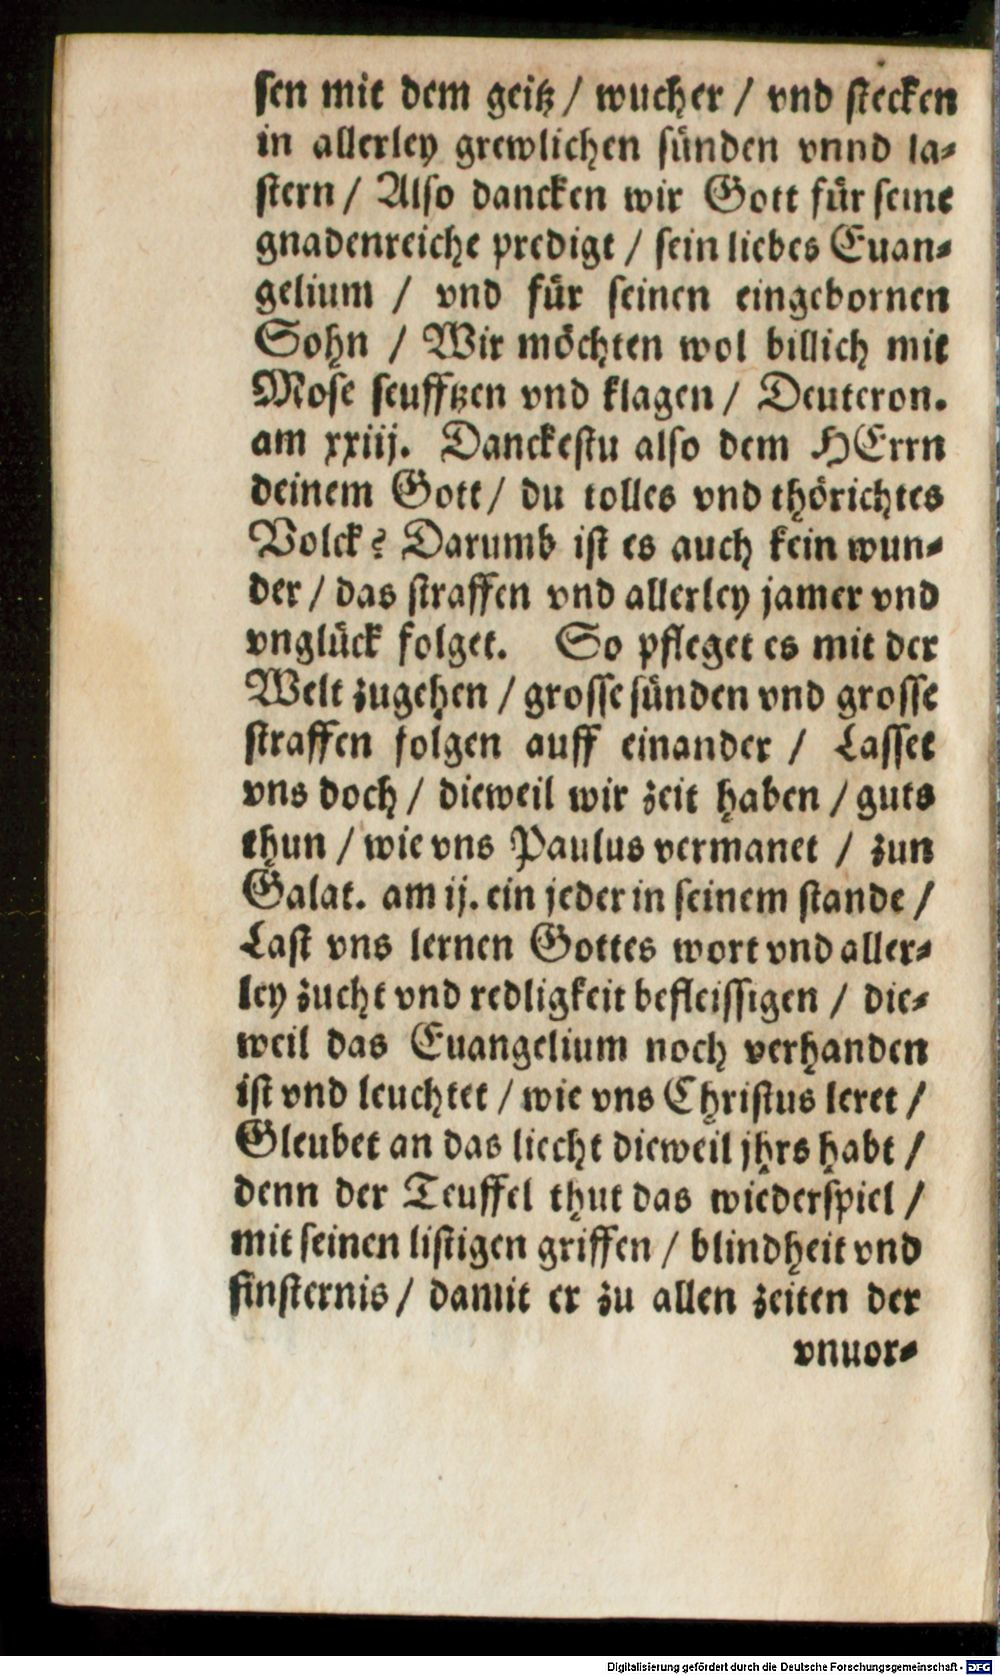 sen mit dem geitz / wucher / vnd stecken
in allerley grewlichen sünden vnnd la-
stern / Also dancken wir Gott für seine
gnadenreiche predigt / sein liebes Euan-
gelium / vnd für seinen eingebornen
Sohn / Wir möchten wol billich mit
Mose seufftzen vnd klagen / Deuteron.
am xxiij. Danckestu also dem HErrn
deinem Gott / du tolles vnd thörichtes
Volck? Darumb ist es auch kein wun-
der / das straffen vnd allerley jamer vnd
vnglück folget. So pfleget es mit der
Welt zugehen / grosse sünden vnd grosse
straffen folgen auff einander / Lasset
vns doch / dieweil wir zeit haben / guts
thun / wie vns Paulus vermanet / zun
Galat. am ij. ein jeder in seinem stande /
Last vns lernen Gottes wort vnd aller-
ley zucht vnd redligkeit befleissigen / die-
weil das Euangelium noch verhanden
ist vnd leuchtet / wie vns Christus leret /
Gleubet an das liecht dieweil jhrs habt /
denn der Teuffel thut das wiederspiel /
mit seinen listigen griffen / blindheit vnd
finsternis / damit er zu allen zeiten der
vnuor-
Digitalisierung gefördert durch die Deutsche Forschungsgemeinschaft - DFG